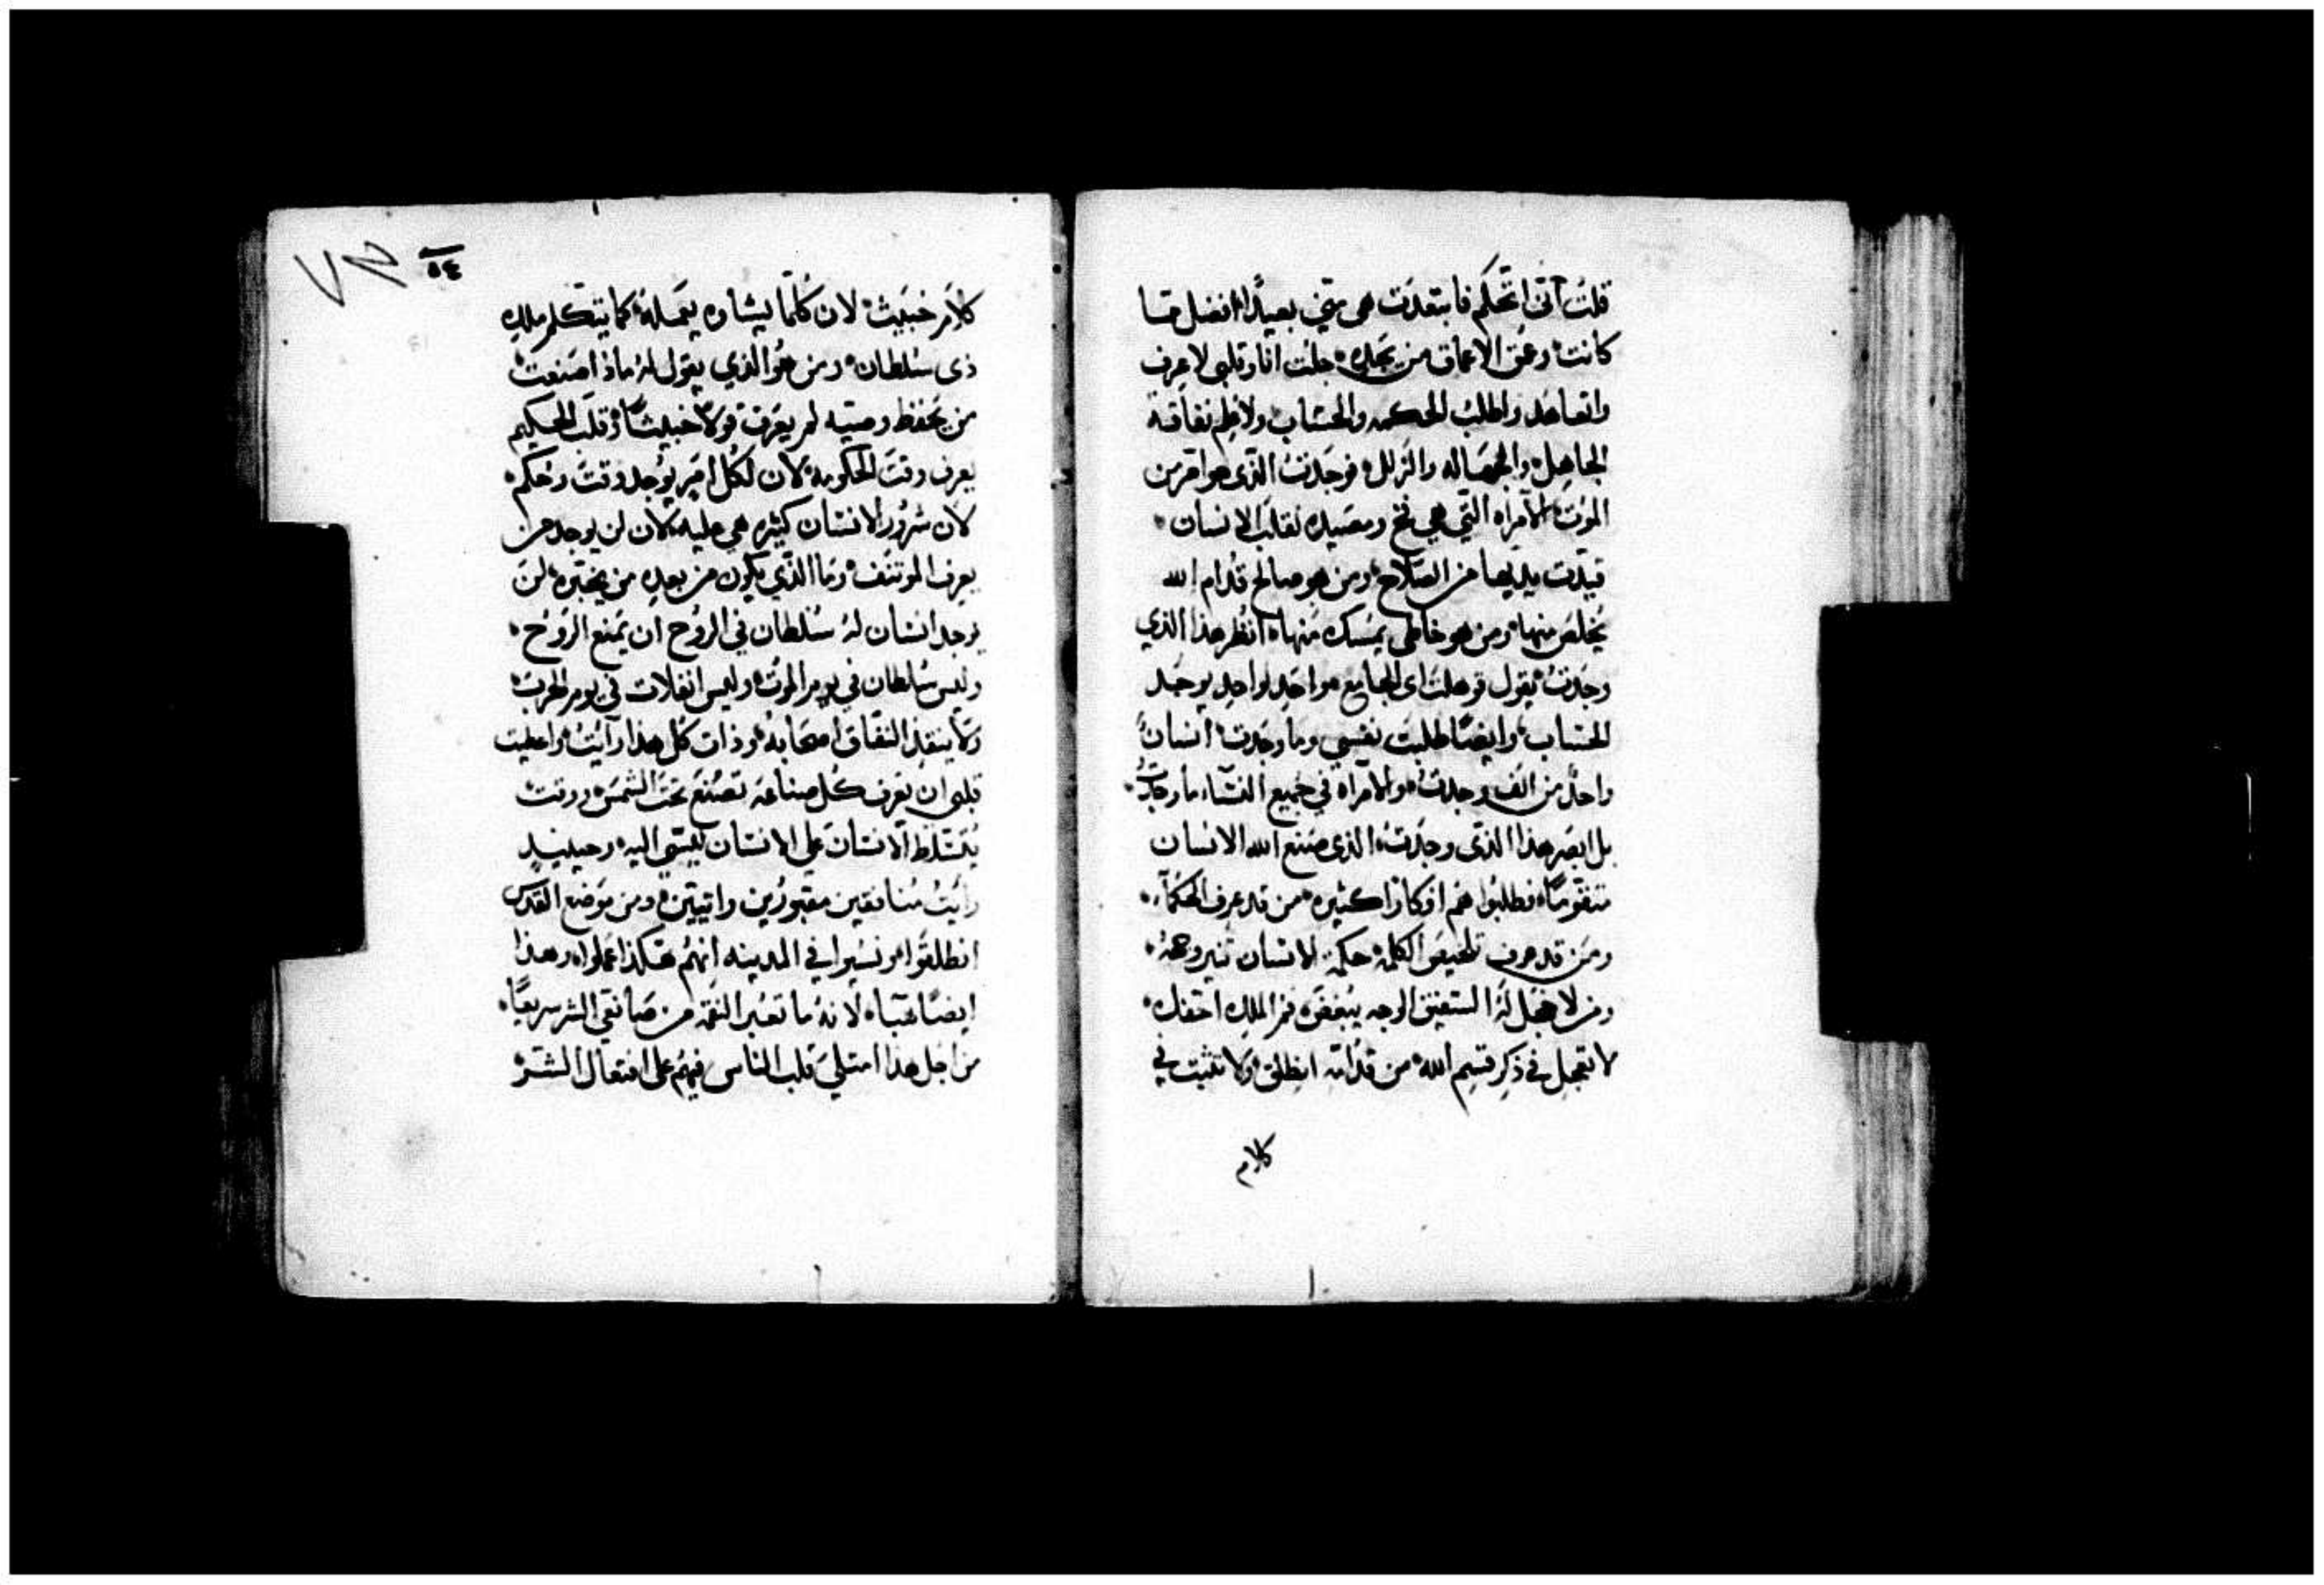 قلتُ اَنى اتحَكم فابتعدَت هى متّي بعيدًا افضل مما
كانت وعُمق الاعماق من يجده جلت انا وقلبى لاعرف
واتعاهد واطلبُ الحكمه والحساب ولاعلم نفاق
الجاهل والجهاله والزلل فوجدتُ الذى هو امر من
الموت الامراه التي هي فخ ومصيده لقلب الانسان
قيدت يديها من الصلاح ومن هو صالح قدام الله
يخلص منها ومن هو خاطى يمسك منها انظر هذا الذي
وجدتُ يقول قوهلت اى الجامع هو احد لواحد يوجد
الحساب وايضًا طلبت نفسي وما وجدت انسان
واحدًا من الف وجدت والامراه في جميع النساء ما وجدتُ
بل ابصر هذا الذى وجدتُ الذى صنع الله الانسان
متقومًا فطلبوا هم افكارا كثيره من قد عرف الحكماء
ومن قد عرف تلخيص الكلمه حكمة الانسان تنير وجهه
ومن لا خجل له الوجه يبغض فم الملك احتفظ
لا تعجل في ذكر قسم الله من قدامه انطلق ولا تثبت في
كلام
٥٤
كلام خبيث لان كلّما يشاوه يعمله كما يتكلم ملك
ذى سُلطان ومن هُو الذي يقول له ماذا صنعت
من يحفظ وصيته لم يعرف قولا خبيثًا وقلب الحكيم
يعرف وقت الحكومه لان لكل امر يوجد وقت وحكم
لان شرور الانسان كثيره هي عليه لان لن يوجد من
يعرف الموتنف وما الذى يكون من بعده من يخبره لن
يوجد انسان له سُلطان في الروح ان يمنع الروح
وليس سلطان في يوم الموت وليس انفلات في يوم الحرب
ولا ينقذ النفاق اصحابه وذات كل هذا رايتُ واعطيت
قلبى ان يعرف كل صناعه تصنع تحت الشمس ووقت
يتسلط الانسان على الانسان ليسي اليه وحينيذ
رايتُ منافقين مقبورين واتيين ومن موضع القدس
انطلقوا ونسيوا في المدينه انهُم هكذا عملوا وهذا
ايضًا عبا لانهُ ما تعبر النقمه من صانعي الشر سريعًا
من اجل هذا امتلي قلب الناس فيهم على افتعال الشر